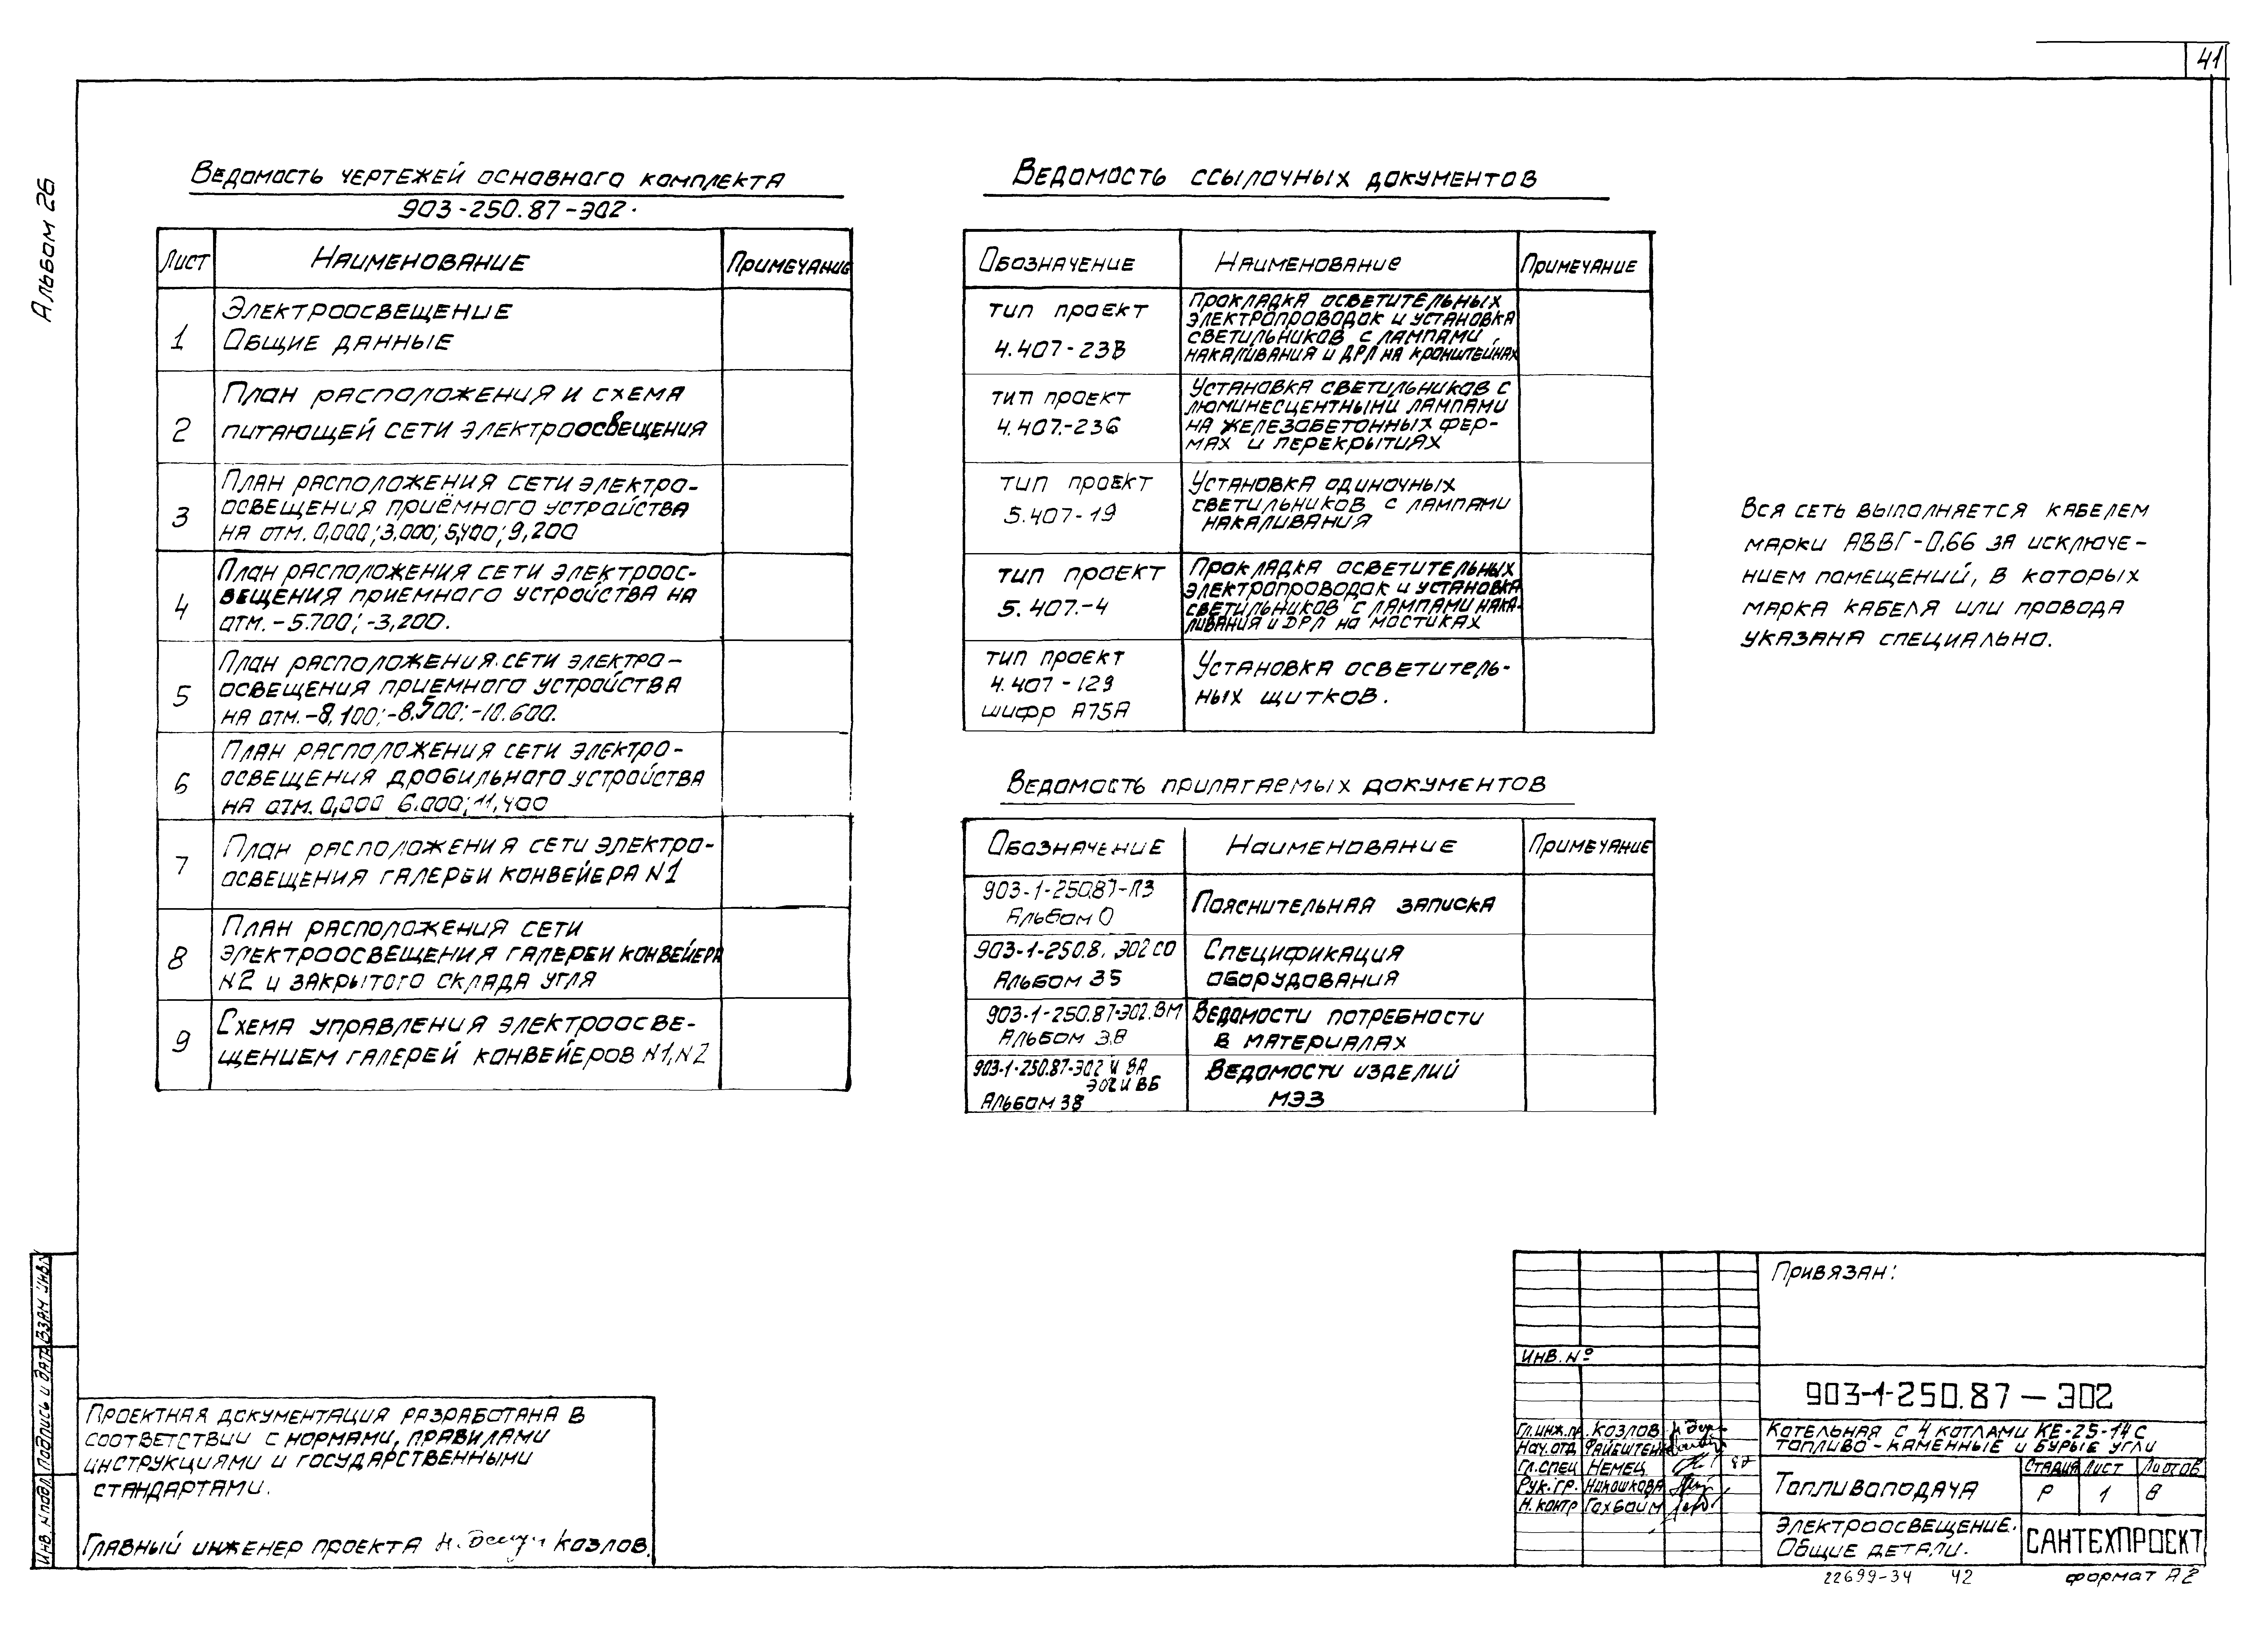 41
Альбом 26
Ведомость чертежей основного комплекта
903-250.87-ЭО2.
Лист Наименование Примечание
1 Электроосвещение
Общие данные
2 План расположения и схема
питающей сети электроосвещения
3 План расположения сети электро-
освещения приёмного устройства
на отм. 0,000; 3.000; 5,400; 9,200
4 План расположения сети электроос-
вещения приемного устройства на
отм. -5.700; -3,200.
5 План расположения сети электро-
освещения приемного устройства
на отм. -8,100; -8.500; -10.600.
6 План расположения сети электро-
освещения дробильного устройства
на отм. 0,000 6.000; 11,400
7 План расположения сети электро-
освещения галереи конвейера N1
8 План расположения сети
электроосвещения галереи конвейера
N2 и закрытого склада угля
9 Схема управления электроосве-
щением галерей конвейеров N1, N2
Ведомость ссылочных документов
Обозначение Наименование Примечание
тип проект
4.407-23В
Прокладка осветительных
электропроводок и установка
светильников с лампами
накаливания и ДРЛ на кронштейнах
тип проект
4.407.-236
Установка светильников с
люминесцентными лампами
на железобетонных фер-
мах и перекрытиях
тип проект
5.407-19
Установка одиночных
светильников с лампами
накаливания
тип проект
5.407.-4
Прокладка осветительных
электропроводок и установка
светильников с лампами нака-
ливания и ДРЛ на мостиках
тип проект
4.407-129
шифр А75А
Установка осветитель-
ных щитков.
Ведомость прилагаемых документов
Обозначение Наименование Примечание
903-1-250.87-ПЗ
Альбом 0
Пояснительная записка
903-1-250.8. ЭО2 СО
Альбом 35
Спецификация
оборудования
903-1-250.87-ЭО2.ВМ
Альбом 38
Ведомости потребности
в материалах
903-1-250.87-ЭО2 И ВА
ЭО2 И ВБ
Альбом 38
Ведомости изделий
МЭЗ
Вся сеть выполняется кабелем
марки АВВГ-0,66 за исключе-
нием помещений, в которых
марка кабеля или провода
указана специально.
Проектная документация разработана в
соответствии с нормами, правилами
инструкциями и государственными
стандартами.
Главный инженер проекта Козлов.
Инв. N подл. Подпись и дата Взам инв. N
Привязан:
Инв. №
903-1-250.87-ЭО2
Котельная с 4 котлами КЕ-25-14С
топливо-каменные и бурые угли
Гл.инж.пр. Козлов
Нач.отд. Файештейн
Гл.спец Немец 87
Рук.гр. Никошкова
Н.контр Гохбойм
Топливоподача
Стадия Лист Листов
Р 1 8
Электроосвещение.
Общие детали.
САНТЕХПРОЕКТ
22699-34 42 формат А2